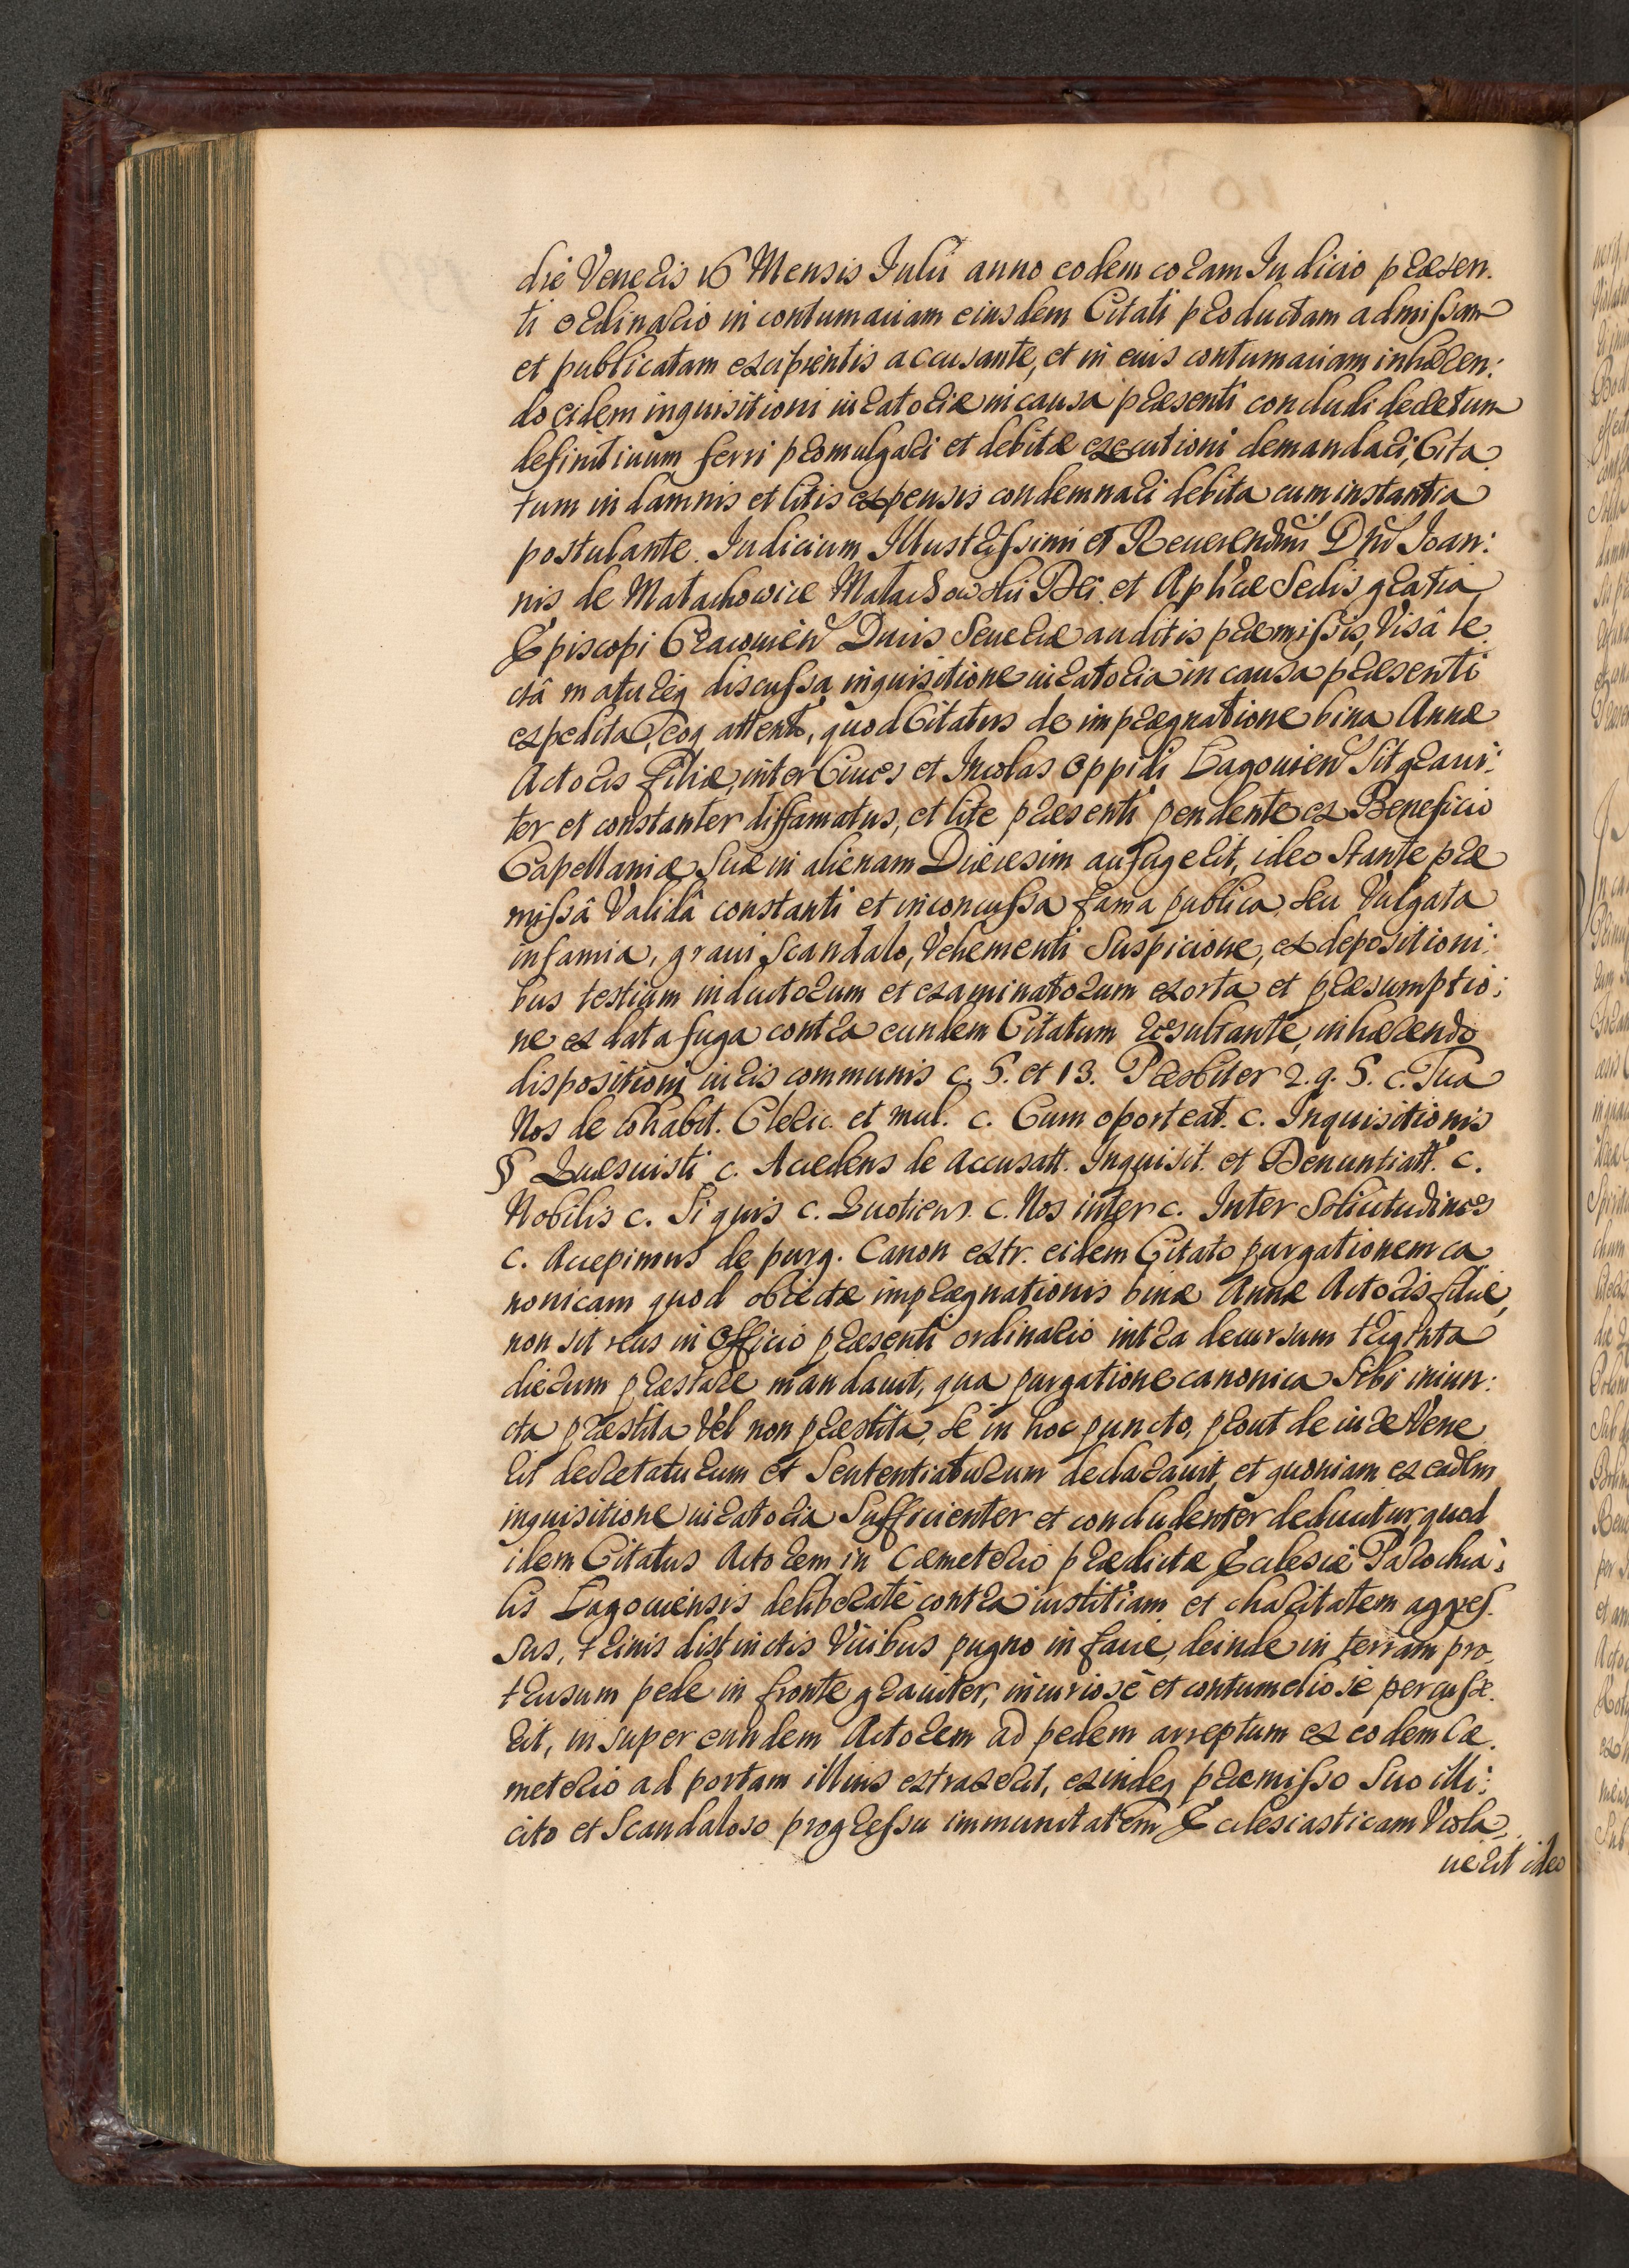 die Veneris 16 Mensis Iulii anno eodem coram Iudicio præsen.
ti ordinario in contumaciam eiusdem Citati productam admissam
et publicatam excipientis accusante, et in eius contumaciam inhæren:
do eidem inquisitioni iuratoriæ in causa præsenti concludi decretum
definitiuum ferri promulgari et debitæ executioni demandari, Cita
tum in damnis et litis expensis condemnari debita cum instantia
postulante. Iudicium Illustrissimi et Reuerendmi Dni Ioan:
nis de Małachowice Małachowski Dei et Aplicæ Sedis gratia
Episcopi Cracouien Ducis Seueriæ auditis præmissis, Visâ le
ctâ matureq discussa inquisitione iuratoria in causa præsenti
expedita, eoq attento, quod Citatus de imprægnatione bina Annæ
Actoris filiæ, inter Ciues et Incolas Oppidi Łagouien Sit graui:
ter et constanter diffamatus, et lite præsenti pendente ex Beneficio
Capellaniæ Suæ in alienam Diæcesim aufugerit, ideo Stante præ
missâ Validâ constanti et inconcussa fama publica, seu Vulgata
infamia, graui Scandalo, Vehementi Suspicione, ex depositioni:
bus testium inductorum et examinatorum exorta et præsumptio:
ne ex data fuga contra eundem Citatum resultante, inhærendo
dispositioni iuris communis c. 5. et 13. Præsbiter 2. q. 5. c. Tua
Nos de Cohabit. Cleric. et mul. c. Cum oporteat. c. Inquisitionis
§ Quæsuisti c. Accedens de Accusatt. Inquisit. et Denuntiatt. c.
Nobilis c. Si quis c. Quotiens. c. Nos inter c. Inter Solicitudines
c. Accepimus de purg. Canon extr. eidem Citato purgationem ca
nonicam quod obiectæ imprægnationis binæ Annæ Actoris filiæ,
non sit reus in Officio præsenti ordinario intra decursum triginta
dierum præstare mandauit, qua purgatione canonica Sibi iniun:
cta præstita Vel non præstita, Se in hoc puncto, prout de iure Vene
rit decretaturum et Sententiaturum declarauit, et quoniam ex eadem
inquisitione iuratoria Sufficienter et concludenter deducitur, quod
idem Citatus Actorem in Cæmeterio prædictæ Ecclesiæ Parochia:
lis Łagouiensis deliberatè contra iustitiam et charitatem aggres.
sus, trinis distinctis Vicibus pugno in facie, deinde in terram pro,
trusum pede in fronte grauiter, iniuriosè et contumeliosè percusse.
rit, insuper eundem Actorem ad pedem arreptum ex eodem Cæ.
meterio ad portam illius extraxerit, exindeq præmisso Suo illi:
cito et Scandaloso progressu immunitatem Ecclesiasticam Viola,
uerit ideo